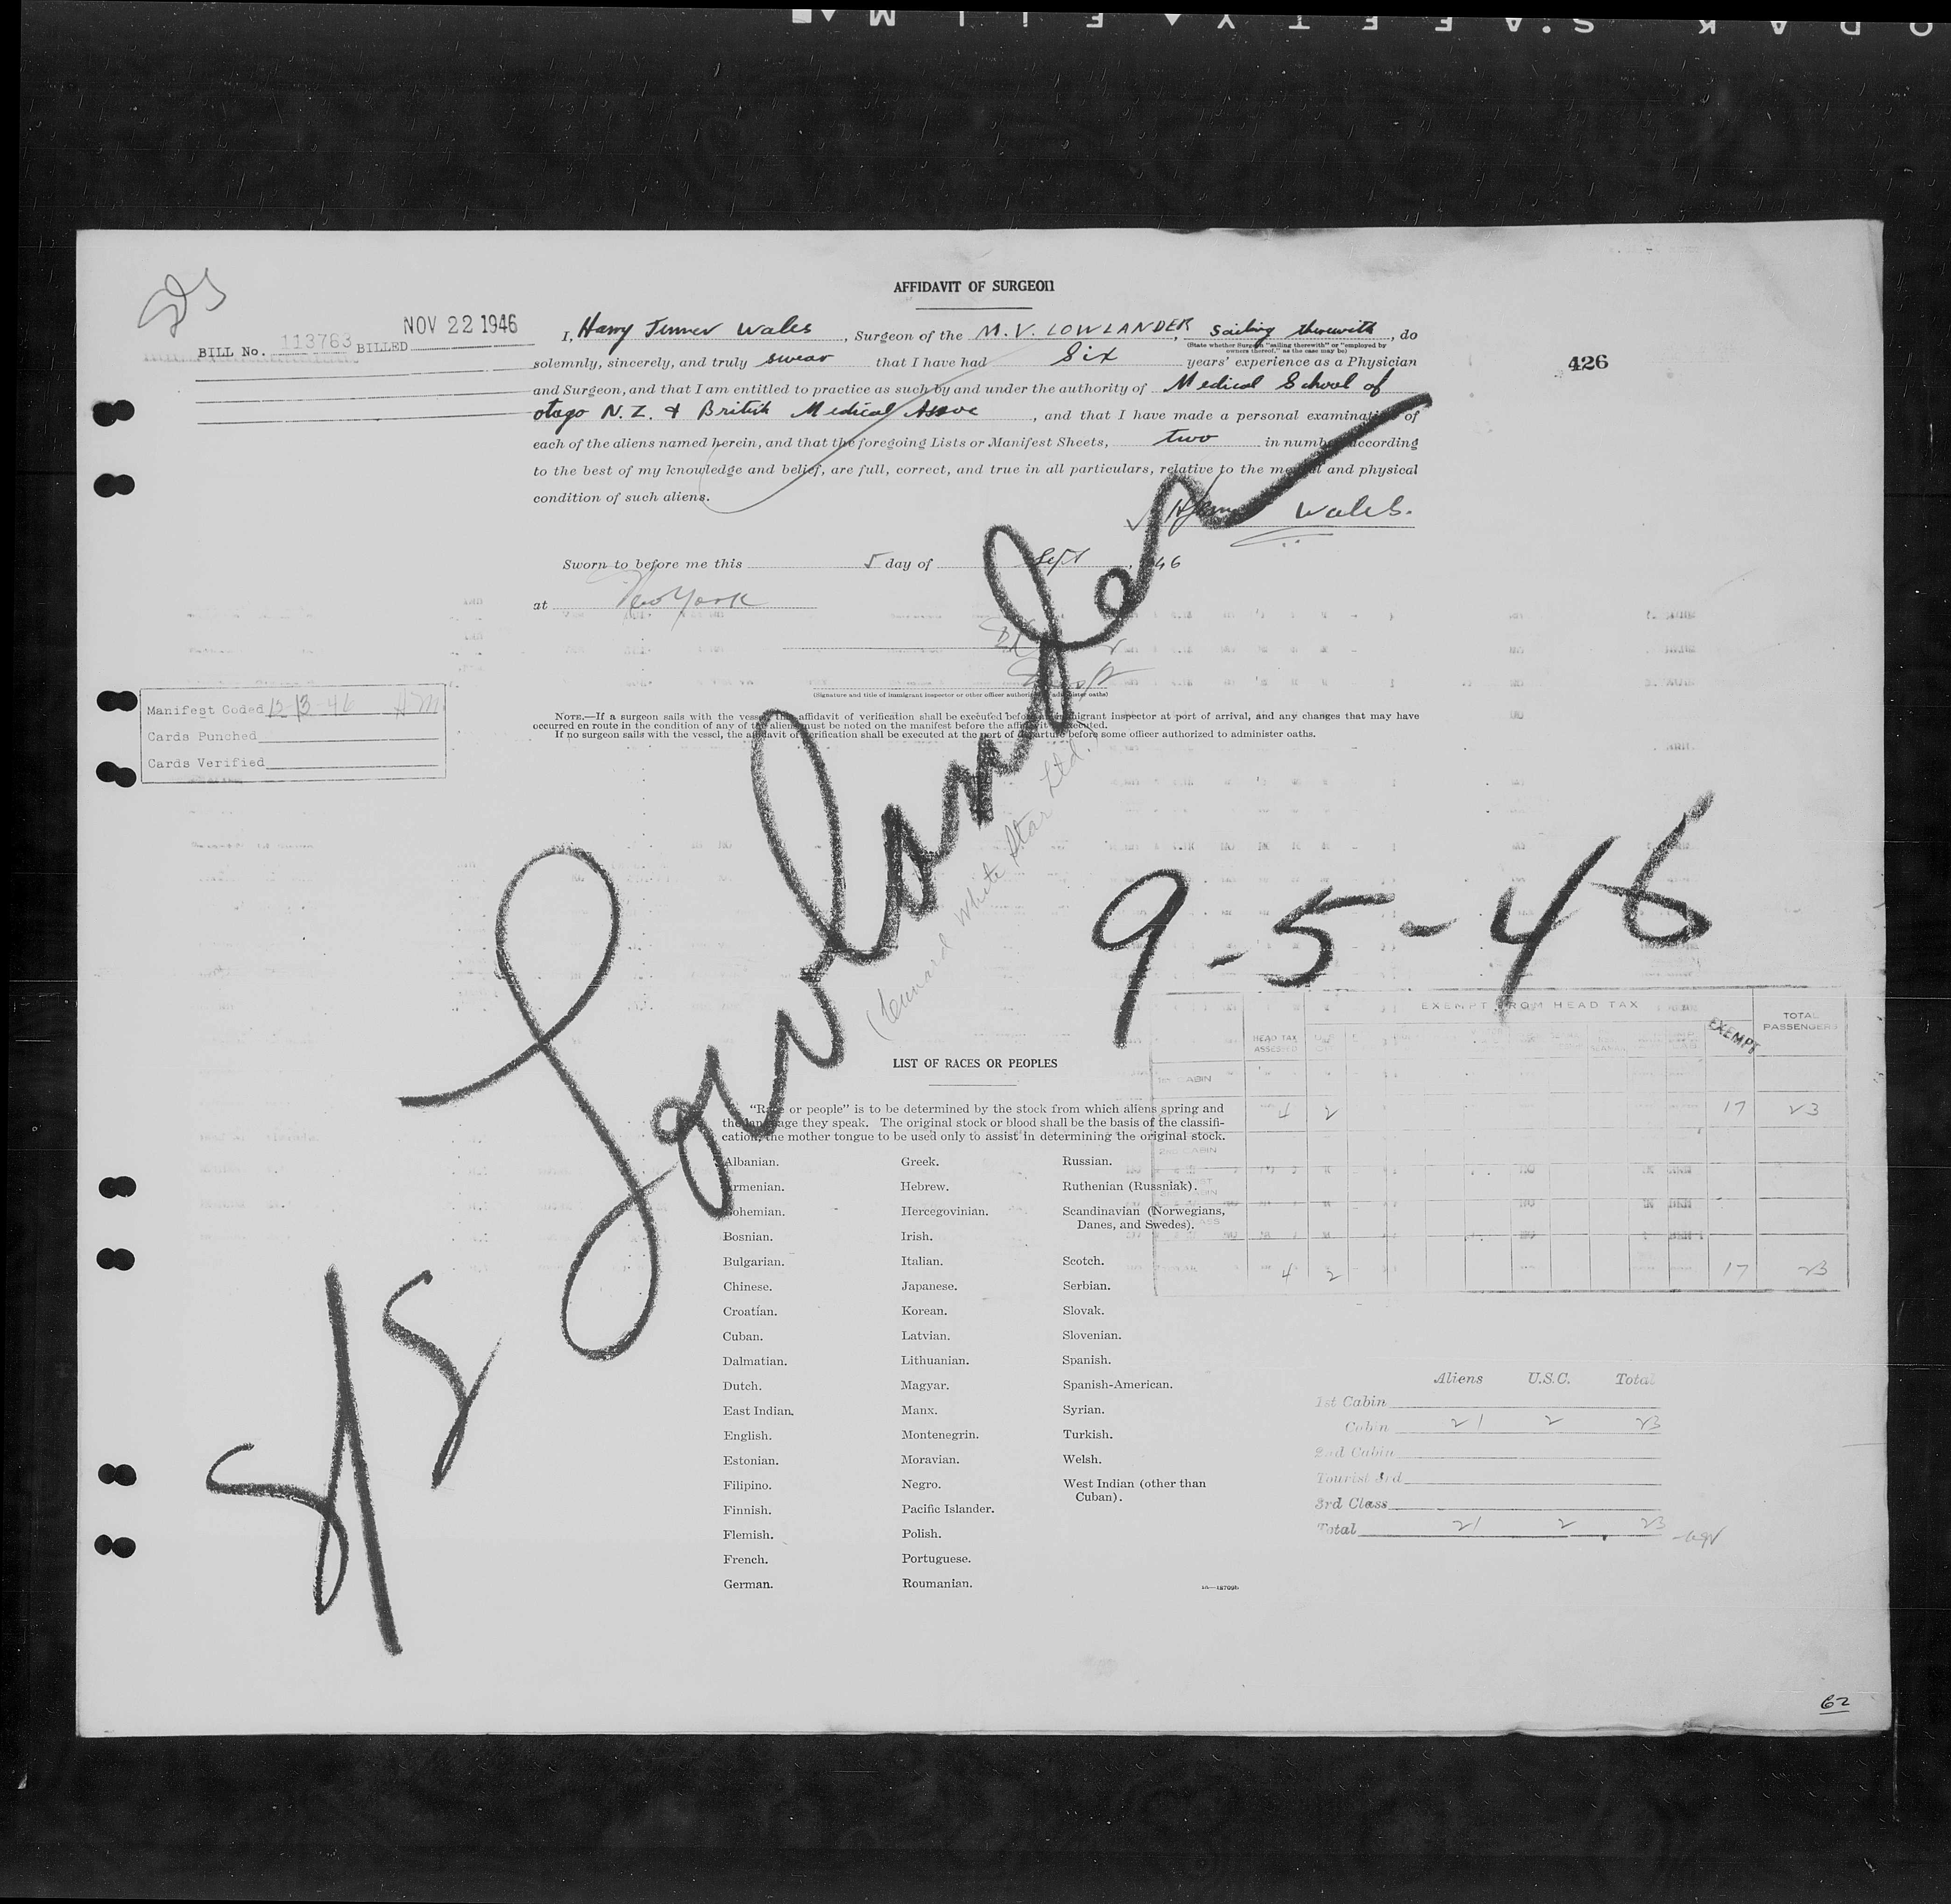 KODAK SAFETY FILM
AFFIDAVIT OF SURGEON
NOV 22 1946
BILL No. 113763 BILLED
426
I, Harry Jenner Wales, Surgeon of the M.V. LOWLANDER, sailing therewith, do
(State whether Surgeon "sailing therewith" or "employed by
owners thereof," as the case may be)
solemnly, sincerely, and truly swear that I have had Six years' experience as a Physician
and Surgeon, and that I am entitled to practice as such by and under the authority of Medical School of
otago N.Z. & British Medical Assoc, and that I have made a personal examination of
each of the aliens named herein, and that the foregoing Lists or Manifest Sheets, two in number according
to the best of my knowledge and belief, are full, correct, and true in all particulars, relative to the mental and physical
condition of such aliens.
Wales.
Sworn to before me this 5 day of Sept, 1946
at New York
(Signature and title of immigrant inspector or other officer authorized to administer oaths)
NOTE.—If a surgeon sails with the vessel, the affidavit of verification shall be executed before an immigrant inspector at port of arrival, and any changes that may have
occurred en route in the condition of any of the aliens must be noted on the manifest before the affidavit is executed.
If no surgeon sails with the vessel, the affidavit of verification shall be executed at the port of departure before some officer authorized to administer oaths.
Manifest Coded 12-13-46
Cards Punched
Cards Verified
S/S Lowlander
(Cunard White Star Ltd.)
9-5-46
EXEMPT FROM HEAD TAX
HEAD TAX ASSESSED
EXEMPT
TOTAL PASSENGERS
1ST CABIN
4 2 17 23
2ND CABIN
4 2 17 23
LIST OF RACES OR PEOPLES
"Race or people" is to be determined by the stock from which aliens spring and
the language they speak. The original stock or blood shall be the basis of the classifi-
cation, the mother tongue to be used only to assist in determining the original stock.
Albanian.
Armenian.
Bohemian.
Bosnian.
Bulgarian.
Chinese.
Croatian.
Cuban.
Dalmatian.
Dutch.
East Indian.
English.
Estonian.
Filipino.
Finnish.
Flemish.
French.
German.
Greek.
Hebrew.
Hercegovinian.
Irish.
Italian.
Japanese.
Korean.
Latvian.
Lithuanian.
Magyar.
Manx.
Montenegrin.
Moravian.
Negro.
Pacific Islander.
Polish.
Portuguese.
Roumanian.
Russian.
Ruthenian (Russniak).
Scandinavian (Norwegians,
Danes, and Swedes).
Scotch.
Serbian.
Slovak.
Slovenian.
Spanish.
Spanish-American.
Syrian.
Turkish.
Welsh.
West Indian (other than
Cuban).
Aliens U.S.C. Total
1st Cabin
Cabin 21 2 23
2nd Cabin
Tourist 3rd
3rd Class
Total 21 2 23
62